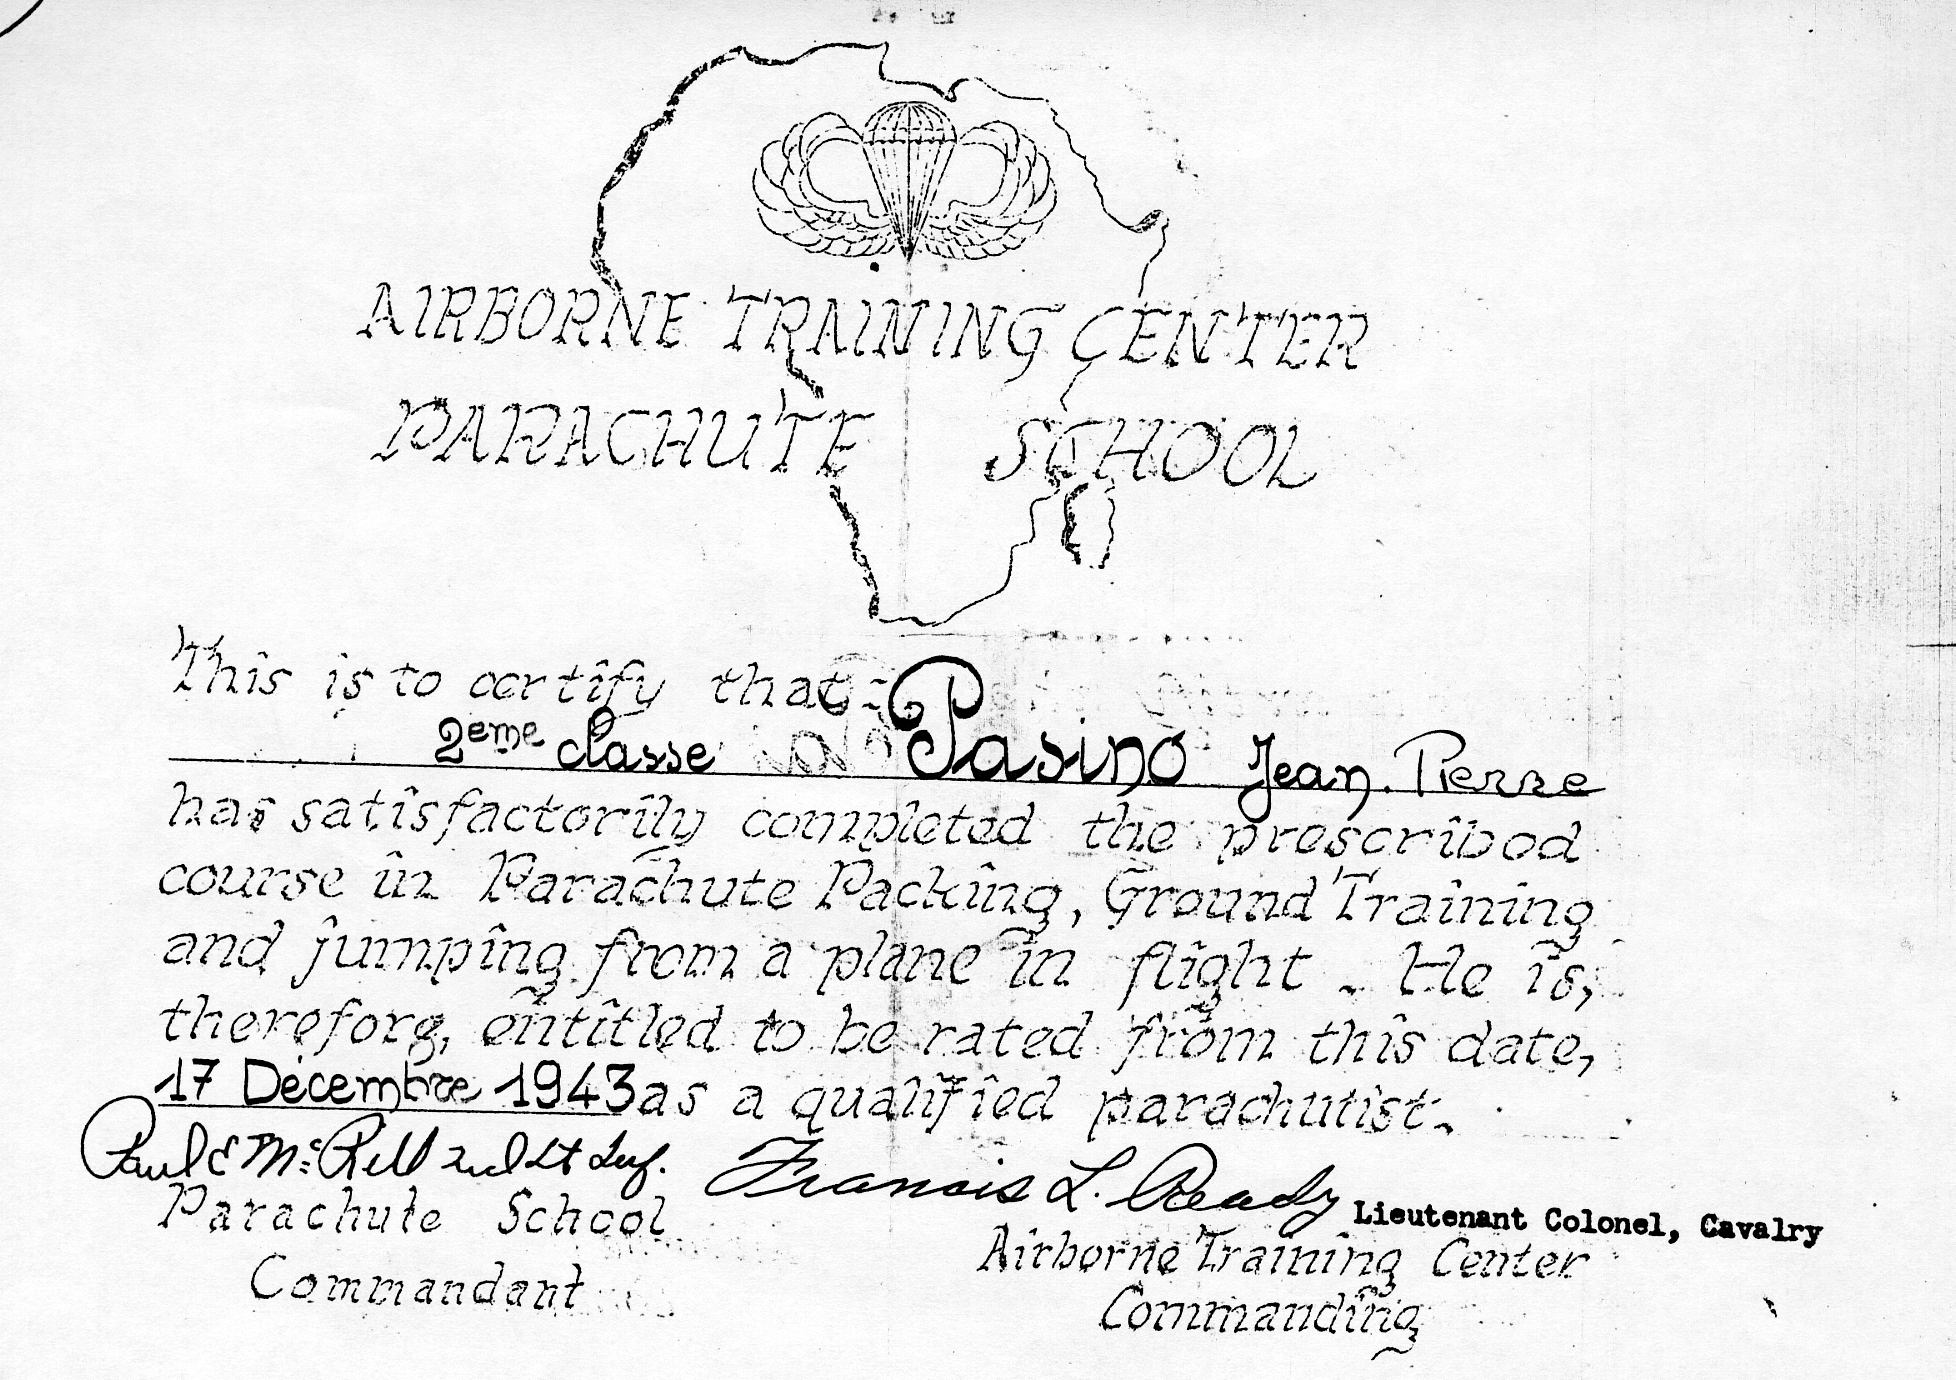 AIRBORNE TRAINING CENTER
PARACHUTE SCHOOL
This is to certify that:
2eme classe Pasino Jean. Pierre
has satisfactorily completed the prescribed
course in Parachute Packing, Ground Training
and jumping from a plane in flight. He is,
therefore, entitled to be rated from this date,
17 Décembre 1943 as a qualified parachutist.
Paul E 2nd Lt Inf. Francis L. Ready Lieutenant Colonel, Cavalry
Parachute School Airborne Training Center
Commandant Commanding